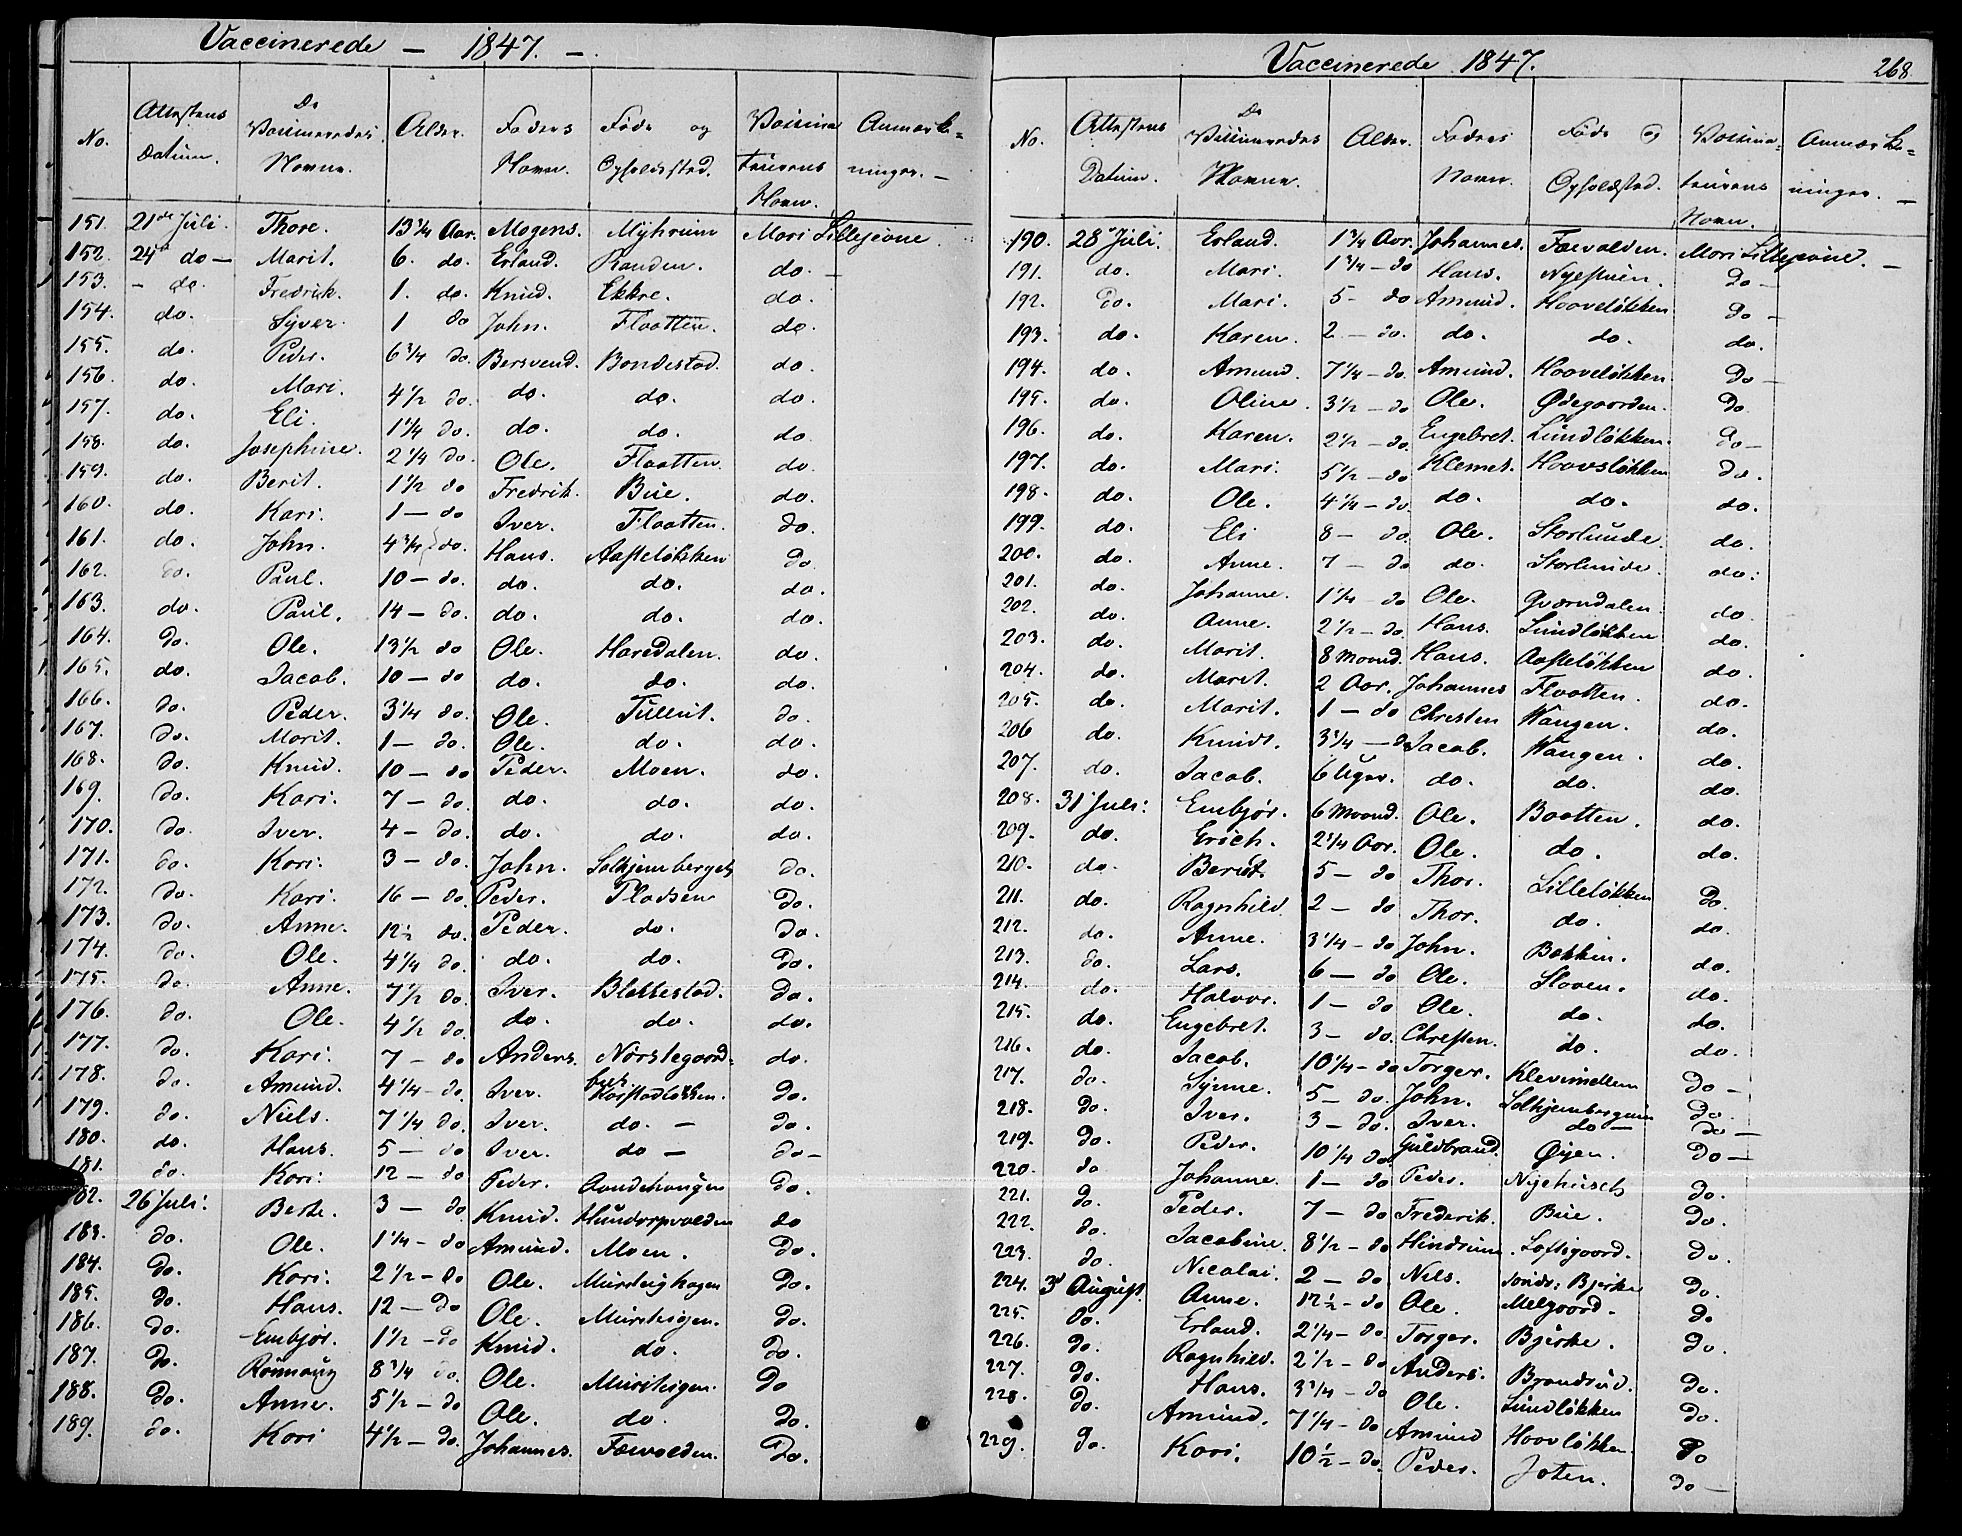 Vaccinerede — 1847. —
No. | Attestens Datum. | De Vaccineredes Navne. | Alder. | Faders Navn. | Føde og Opholdssted. | Vaccinateurens Navn. | Anmærkninger. —
151. 21de Juli. Thore. 13¾ Aar. Mogens. Myhrum Mari Lillejevne.
152. 24de do — Marit. 6. do. Erland. Randen. do. —
153. — do. Fredrik. 1. do. Knud. Ekkre. do.
154. do. Syver. 1 do John. Flaatten. do.
155. do. Peder. 6¾ do. Bersvend. Bondestad. do.
156. do. Mari. 4½ do. do. do. do.
157. do. Eli. 1¼ do. do. do. do.
158. do. Josephine. 2¼ do. Ole. Flaatten. do.
159. do. Berit. 1½ do Fredrik. Bue. do.
160. do. Kari. 1 — do Iver. Flaatten. do.
161. do. John. 4¾ do. Hans. Aasteløkken do
162. do. Paul. 10 — do. do. do. do.
163. do. Paul. 14 — do. do. do. do.
164. do. Ole. 13½ do Ole. Haredalen. do.
165. do. Jacob. 10 — do do. do. do.
166. do. Peder. 3¼ do. Ole. Tullut. do.
167. do. Marit. 1 — do. Ole. do. do.
168. do. Knud. 10 — do Peder. Moen. do.
169. do. Kari. 7 — do. do. do. do.
170. do. Iver. 4 — do. do. do. do.
171. do. Kari. 3 — do. John. Solhjemberget do.
172. do. Kari. 16 — do. Peder. Pladsen do.
173. do. Anne. 12½ do. Peder. do. do.
174. do. Ole. 4¼ do. do. do. do.
175. do. Anne. 7½ do. Iver. Blekkestad. do.
176. do. Ole. 4½ do. do. do. do.
177. do. Kari. 7 — do Anders. Nørstegaard. do.
178. do. Amund. 4¼ — do. Iver. Harstadløkken. do.
179. do. Niels. 7¼ do. Iver. do. — do.
180. do. Hans. 5 — do Iver. do — do —
181. do. Kari. 12 — do Peder. do.
182. 26 Juli. Berte. 3 — do Knud. Hundorpvolden do
183. do. Ole. 1¼ — do Amund. Moen. do.
184. do. Kari. 2½ — do Ole. do.
185. do. Hans. 12 — do Ole. do.
186. do. Embjør. 1½ — do Knud. do. do.
187. do. Rønnaug 8¾ do. Ole. do
188. do. Anne. 5½ — do Ole. do. do.
189. do. Kari 4½ — do. Johannes. Fævolden. do.
Vaccinerede 1847. 268.
No. | Attestens Datum. | De Vaccineredes Navne. | Alder. | Fadres Navn. | Føde og Opholdsted. | Vaccinateurens Navn. | Anmærkninger. —
190. 28de Juli. Erland. 1¾ Aar. Johannes. Fævolden. Mari Lillejevne. —
191. do. Mari. 1¾ — do Hans. Nyestuen. do —
192. do. Mari. 5 — do Amund. Haaveløkken do —
193. do. Karen. 2 — do. do. do. do.
194. do. Amund. 7¼ — do. Amund. Haaveløkken. do —
195. do. Oline. 3½ — do Ole. Ødegaarden. do.
196. do. Karen. 2½ — do. Engebret. Lundløkken. do —
197. do. Mari. 5½ — do Klemet. Haavsløkken do.
198. do. Ole. 4¼ — do do. do. do.
199. do. Eli 8 — do. Ole. Storlunde. do.
200. do. Anne. 7 — do do. Storlunde. do.
201. do. Johanne. 1¼ — do Ole. Qværndalen. do
202. do. Anne. 2½ — do Hans. Lundløkken do.
203. do. Marit. 8 Maand. Hans. Aasteløkken do.
204. do. Marit. 2 Aar. Johannes Flaatten. do.
205. do. Marit. 1 — do Christen Wangen. do.
206 do. Knudt. 3¾ — do Jacob. Wangen. do.
207. do. Jacob. 6 Uger. do. do. do.
208. 31 Juli. Embjør. 6 Maand. Ole. Baatten. do.
209. do. Erich. 2¾ Aar. Ole. do. do.
210. do. Berit. 5 — do Thor. Lilleløkken do.
211. do. Ragnhild. 2 — do Thor. do. do.
212. do. Anne. 3¼ — do John. Bekken. do.
213. do. Lars. 6 — do Ole. Sloven. do.
214. do. Halvor. 1 — do Ole. do. do.
215. do. Engebret. 3 — do. Christen. do. do.
216. do. Jacob. 10¼ — do Torger. Klevimellem do —
217. do. Synne. 5 — do. John. do.
218. do. Iver. 3 — do. Iver. do — do —
219. do. Peder. 10¼ do Guldbrand. Øyen. do —
220. do Johanne. 1 — do Peder. Nyehuset do.
221. do. Peder. 7 — do Frederik. Bue. do.
222. do. Jacobine. 8½ — do Loftsgaard. do.
223. do. Nicolai. 2 — do. Nils. Søndr: Bjerke do.
224. 3de August. Anne. 12½ — do Ole. Melgaard. do
225. do. Erland. 2¼ — do. Torger. Bjerke. do.
226. do. Ragnhild. 2½ — do Anders. Brandrud. do.
227. do. Hans. 3¾ — do Ole. Lundløkken do.
228. do. Amund. 7¼ — do Amund Haavløkken. do
229. do. Kari. 10½ — do. Peder. Joten. do —